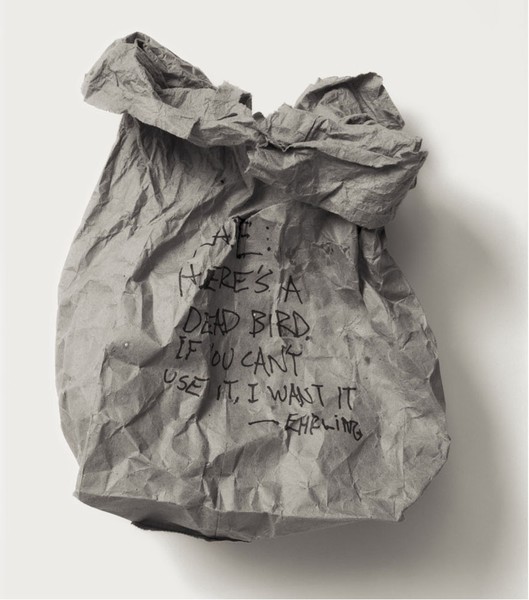 HERE'S A
DEAD BIRD.
IF YOU CAN'T
USE IT, I WANT IT
— EHRLING